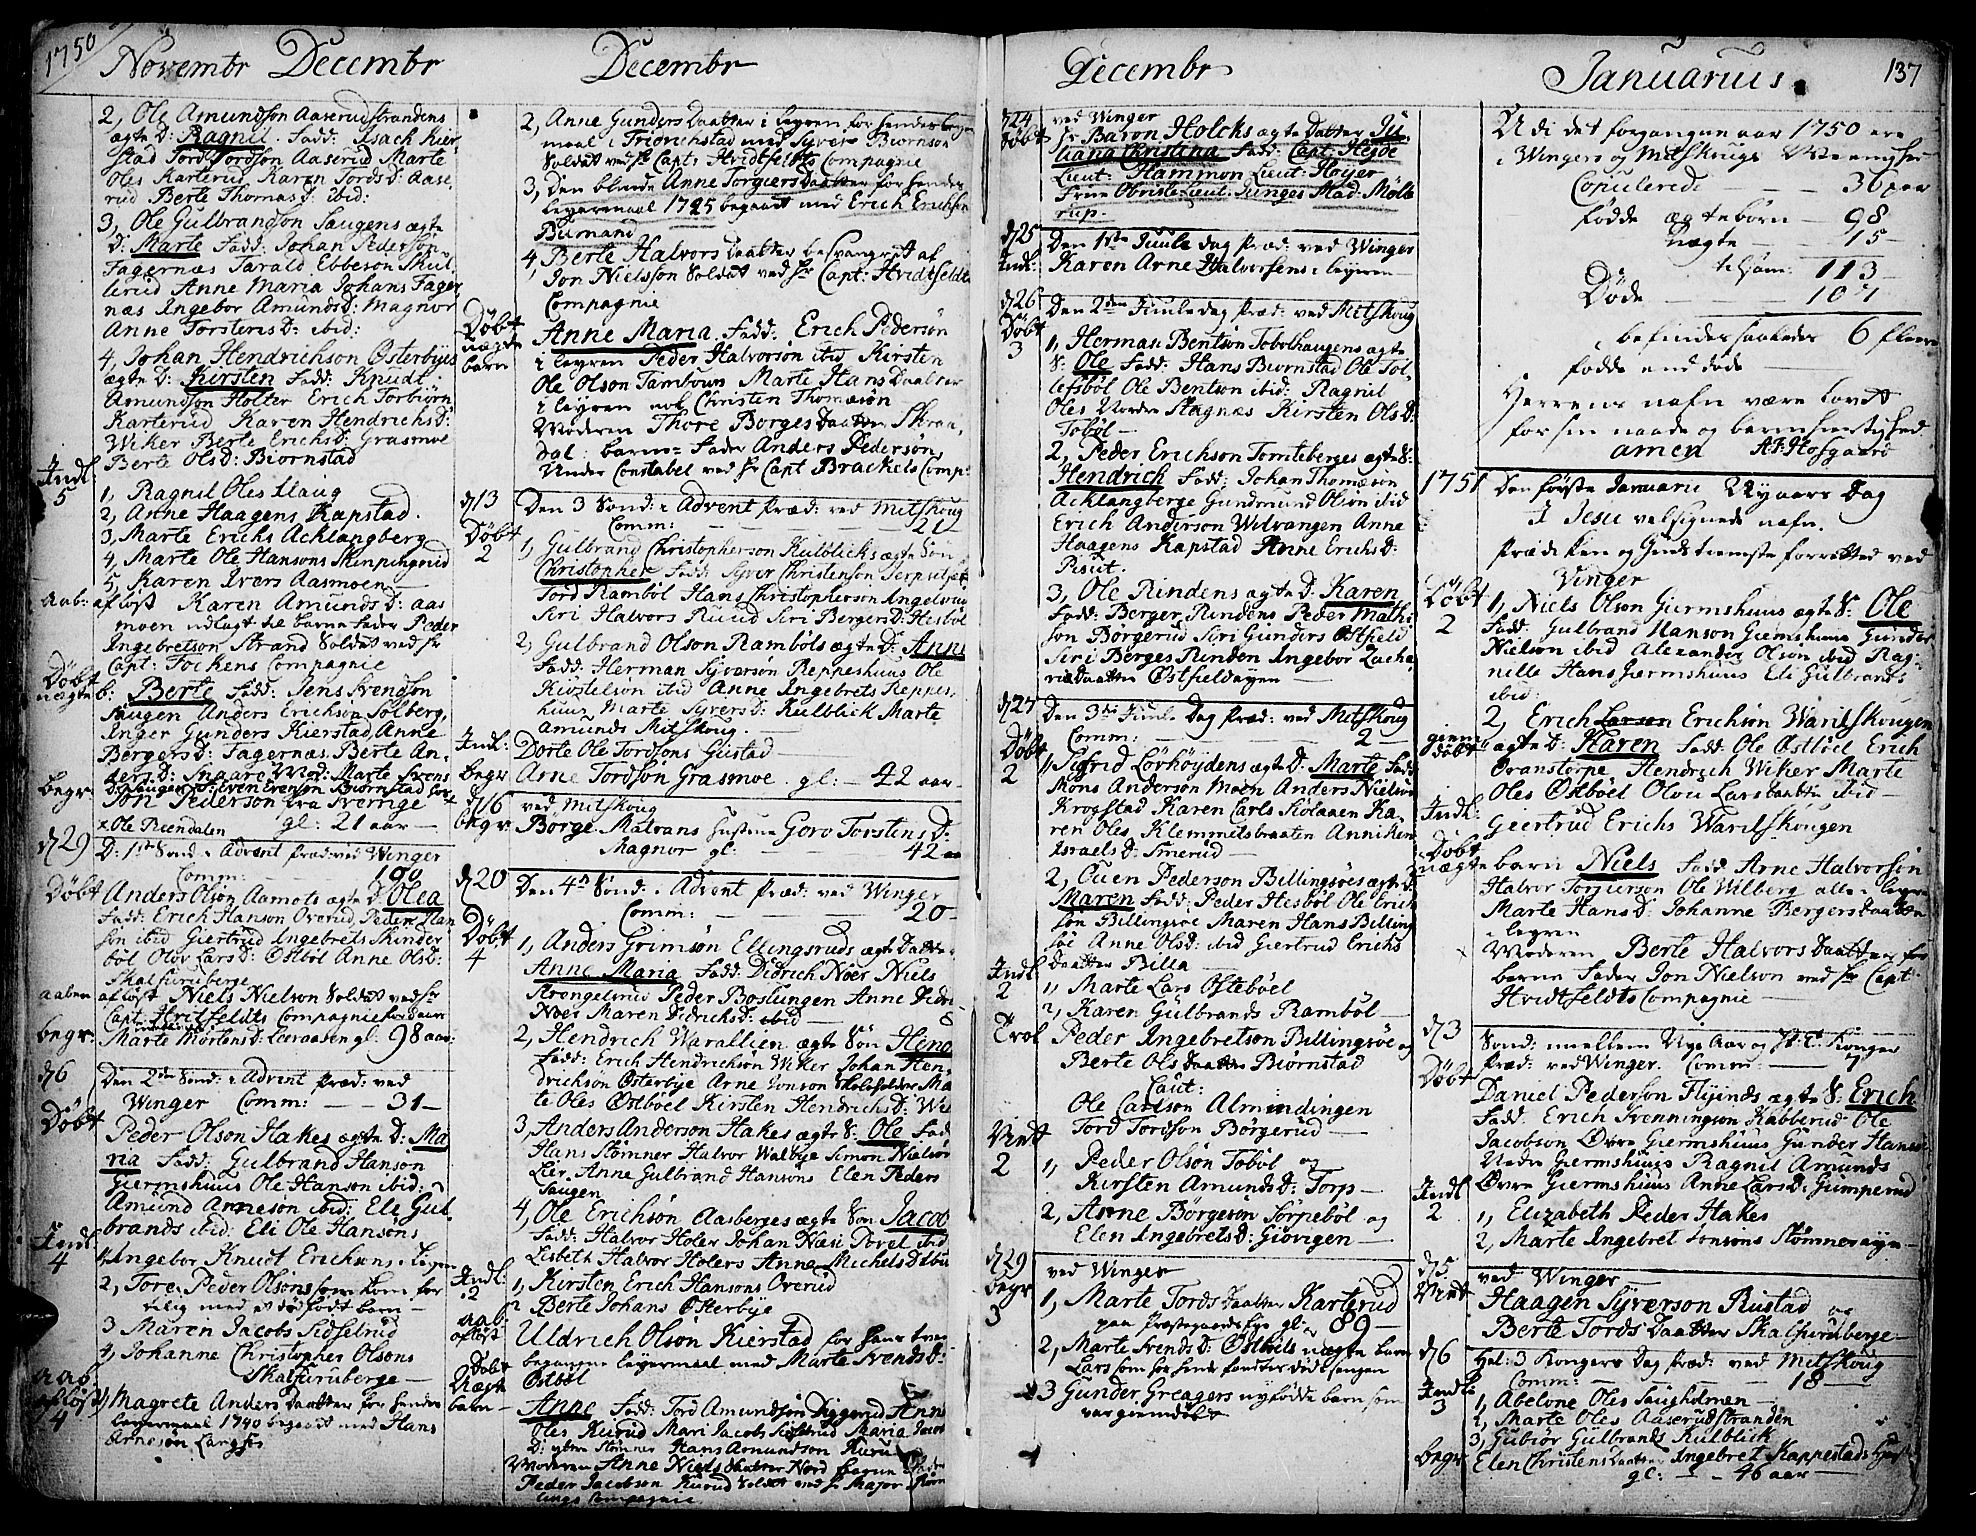 1750
Novembr Decembr
2, Ole Amundson Aaserudstrandens
ægte D: Ragnil Fadd: Isach Kier
stad Tord Tordson Aaserud Marte
Oles Karterud Karen Tords D: Aase,
rud Berte Thomas D: ibid:
3, Ole Gulbrandson Saugens ægte
D: Marte Fadd: Johan Pederson
Fagernæs Tarald Ebbeson Skul,
lerud Anne Maria Johans Fager
næs Ingebor Amunds D: Magnor
Anne Torstens D: ibid:
4, Johan Hendrichson Østerbyes
ægte D: Kirsten Fadd: Knudt
Amundson Holter Erich Torbiørn
Karterud Karen Hendrichs D:
Wiker Berte Erichs D: Grasmoe
Berte Ols D: Biørnstad
Indl:
5
1, Ragnil Oles Haug
2, Anne Haagens Kapstad.
3, Marte Erichs Acklangberg
4, Marte Ole Hansons Skinpungrud
5, Karen Ivers Aasmoen
aab: afløst Karen Amunds D: aas
moen udlagt til barne fader Peder
Ingebretson Strand Soldat ved Hr
Capt: Fockens Compagnie
Døbt
uægte b: Berte Fadd: Jens Svendson
Saugen Anders Erichson Solberg,
Inger Gunders Kierstad, Anne
Bergers D: Fagernæs. Berte An,
ders D: Snaare Mod: Marte Svens
D: Saugen Even Evenson Biørnstad
begr: Jon Pederson fra Sverrige
gl: 21 aar
x Ole Riendalen
d 29 D: 1ste Sønd: i Advent Præd: ved Winger
Comm: 190
Døbt Anders Olson Aamots ægte D Olea
Fadd: Erich Hanson Overud Peder Han
son ibid Giertrud Ingebrets Skinder
bøl Olov Lars D: Østbøl Anne Ols D:
Skalfuruberge
aaben afløst Niels Nielson Soldat ved Hr
Capt. Hvitfeldts Compagnie
begr: Marte Mortens D: Leeraasen gl: 98 aar:
d 6 Den 2den Sønd: i Advent Præd: ved
Winger Comm: 31
Døbt
Peder Olson Hakes ægte D: Ma
ria Fadd: Gulbrand Hanson
Giermshuus Ole Hanson ibid:
Amund Anneson ibid: Ele Gul,
brands ibid: Eli Ole Hansons
Indl
4
1, Ingebor Knudt Erichsons i Leyren
2, Tore Peder Olsons som kom for
tilig med et dødfødt barn
3 Maren Jacobs Sidselrud
4, Johanne Christopher Olsons
Skalfuruberge
aab
afløst
4
1) Magrete Anders Daatter for hendes
leyermaal 1740 begaaet med Hans
Arneson Langset
Decembr
2, Anne Gunders Daatter i leyren for hendes leyer
maal i Friderichstad med Syver Biørnson
Soldat ved Hr Capt: Hvidtfeldts Compagnie
3, Den blinde Anne Torgiers Daatter for hendes
leyermaal 1725 begaaet med Erich Erichson
Burmand
4 Berte Halvors Daatter besvangret af
Jon Nielsson Soldat ved Hr Capt: Hvidtfeldts
Compagnie
Døbt
uægte
barn
Anne Maria. Fadd: Erich Pederson
i leyren Peder Halvorson ibid Kirsten
Ole Olson Tambours Marte Hans Daatter
i leyren nok Christen Thomæson
Moderen Thore Borges Daatter Skraa,
dal: barne = Fader Anders Pederson
Under Constabel ved Hr Capt Brackels Comp:
d 13 Den 3 Sønd: i Advent Præd: ved Mitskoug
Comm: 21
Døbt
2
1, Gulbrand Christopherson Kulblicks ægte Søn
Christopher Fadd: Syver Christenson Serputpæt
Tord Rambøl Hans Christopherson Angelsrud
Siri Halvors Ruud Siri Bergers D: Hesbøl
2, Gulbrand Olson Rambøls ægte D: Anne
Fadd: Herman Syverson Reppeshuus Ole
Kiostelson ibid Anne Ingebrets Reppes,
huus, Marte Syvers D: Kulblick Marte
Amunds Mitskoug.
Indl: Dorte Ole Tordsons Gustad
begr Arne Tordson Grasmoe. gl: 42 aar
d 16 ved Mitskoug
begr Børge Matrans hustrue Goro Torstens D:
Magnor gl: 42 aar
d 20 Den 4de Sønd: i Advent Præd: ved Winger
Comm: 20
Døbt
4
1, Anders Grimson Ellingsruds ægte Daatter
Anne Maria Fadd: Didrich Noer Niels
Arongelsrud Peder Boslungen Anne Didri
Noer Maren Didrichs D: ibid
2, Hendrich Warallien ægte Søn Hend
Fadd: Erich Hendrichson Wiker Johan Hen,
drichson Østerbye Arne Jonson Skoleholder Ma
te Oles Østbøel Kirsten Hendrichs D: Wi
3, Anders Anderson Hakes ægte S: Ole Fad
Hans Stømner Halvor Walbye Simon Nielson
Lier, Anne Gulbrand Hansons Elen Peders
Saugen
4, Ole Erichson Aasberges ægte Søn Jacob
Fadd: Halvor Holer Johan Næsi Povel ibid
Lisbeth Halvor Holers Anne Michels D ibid
Indl:
2
1, Kirsten Erich Hansons Overud
2 Berte Johans Østerbye
aab:
afløst Uldrich Olson Kierstad for hans tvær
begangne leyermaal med Marte Svends D:
Østbøl
Døbt
Uægte
barn
Anne Fadd: Tord Amundson Anne
Oles Kurud Mari Jacobs Sidselrud Maria Jacobs
D: ytre Stømner Hans Amundson Kuru
Moderen Anne Niels Daatter Nord barne fader
Peder Jacobson Kurud Soldat ved Hr Major Biørn
lings Compagnie
Decembr
d 24
Døbt
ved Winger
Hr Baron Holcks ægte Datter Ju
liana Christina Fadd: Capt: Hejde
Lieut: Hammon Lieut: Høyer
Frue Obristelieut: Junges Mad: Mølle
rup.
d 25
Indl:
Den 1ste Juule dag Præd: ved Winger
Karen Arne Halvorsens i leyren
d 26 Den 2den Juule dag Præd: ved Mitskoug
Døbt
3
1, Herman Bentson Tobølhaugens ægte
S: Ole Fadd: Hans Biørnstad Ole Tol,
lefsbøl Ole Bentson ibid: Ragnil
Oles Nordre Skagnæs Kirsten Ols D:
Tobøl
2, Peder Erichson Tomteberges ægte S:
Hendrich Fadd: Johan Thomæson
Acklangberge Gundmund Olson ibid
Erich Anderson Wolvangen Anne
Haagens Kapstad Anne Erichs D:
Pisut.
3, Ole Rindens ægte D: Karen
Fadd: Berger Rindens Peder Mathi
son Børgerud Siri Gunders Østfield
Siri Berges Rinden Ingebor Zacha,
riæ daatter Østfieldøyen
d 27 Den 3die Juule Dag Præd: ved Mitskoug
Comm: 2
Døbt
2
1, Sifrid Lørhøydens ægte D: Marte Fadd
Mons Anderson Moen Anders Nielson
Krogstad Karen Carls Kiølaaen Ka
ren Oles Klemmetsbraaten Anniken
Israels D: Smerud
2, Ouen Pederson Billingsøes ægte D:
Maren Fadd: Peder Hesbøl Ole Erich
son Billingsøe Maren Hans Billing
søe Anne Ols D: ibid Giertrud Erichs
Daatter Billa
Indl
2
1, Marte Lars Østebøel
2, Karen Gulbrands Rambøl
Trol Peder Ingebretson Billingsøe og
Berte Ols Daatter Biørnstad
Caut:
Ole Carlson Almendingen
Tord Tordson Børgerud
Viet
2
1, Peder Olson Tobøl og
Kirsten Amunds D: Torp
2, Arne Børgeson Torpebøl og
Elen Ingebrets D: Giøvigen
d 29
begr
3
ved Winger
1, Marte Tords Daatter Karterud
paa Præstegaards Eye gl: 89
2, Marte Svends D: Østbøls uægte barn
Lars som
3 Gunder Greagers nyfødde barn som
var giemdøbt
Januarius.
137
Udi det forgangne aar 1750 ere
i Wingers og Mitskougs Menigheder
Copulerede 36 par
fødde ægtebørn 98
uægte 15
tilsam: 113
Døde 107
befindes saaledes 6 fleere
fødde end døde
Herrens nafn være lovet
for sin naade og barmhiertighed
amen A: F: Hofgaard
1751 Den første Januarii Nyaars Dag
I Jesu velsignede nafn.
Prædiken og Gudstieneste forretted ved
Vinger
Døbt
2
1, Niels Olson Giermshuus ægte S: Ole
Fadd: Gulbrand Hanson Giemshuus Gunder
Nielson ibid Alexander Olson ibid Rag,
nille Hans Giermshuus Eli Gulbrands
ibid:
2, Erich Larson Erichson Warilskougen
giem
døbt ægte D: Karen Fadd: Ole Østbøl Erich
Oranstorpe Hendrich Wiker Marte
Oles Østbøel Olou Larsdaatter ibid
Indl: Giertrud Erichs Warilskougen
Døbt
uægte barn Niels Fadd: Arne Halvorson
Halvor Torgierson Ole Wilberg alle i leyren
Marte Hans D: Johanne Bergers Daatter
i leyren
Moderen Berte Halvors Daatter for
barne fader Jon Nielson ved Hr Capt
Hvidtfeldts Compagnie
d 3 Sønd: imellem Nye Aar og H: 3 Konger
Præd: ved Winger. Comm: 7
Døbt Daniel Pederson Flyinds ægte S: Erich
Fadd: Erich Svenningson Kabberud Ole
Jacobson Øvre Giermshuus Gunder Hanson
Nedre Giermshuus Ragnil Amunds
Øvre Giermshuus Anne Lars D: Gumperud
Indl
2
1, Elizabeth Peder Hakes
2, Marte Ingebret Jonsons Stømnerøyen
d 5
Viet
ved Winger
Haagen Syverson Rustad og
Berte Tords Daatter Skalfuruberge
d 6 Hel: 3 Kongers Dag Præd: ved Mitskoug
Comm: 18
Indl:
3
1, Abelone Oles Saugholmen
2, Marte Oles Aaserudstranden
3, Gubiør Gulbrands Kulblick
begr Elen Christens Daatter Ingebret Kappestads
gl: 46 aar